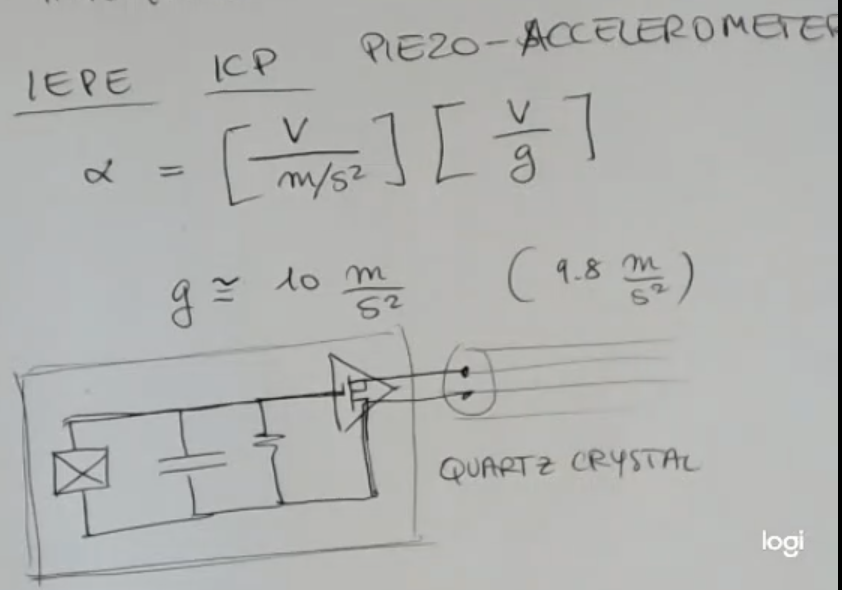 IEPE ICP PIEZO-ACCELEROMETER
α = [V / m/s²] [V / g]
g ≅ 10 m/s² (9.8 m/s²)
QUARTZ CRYSTAL
logi